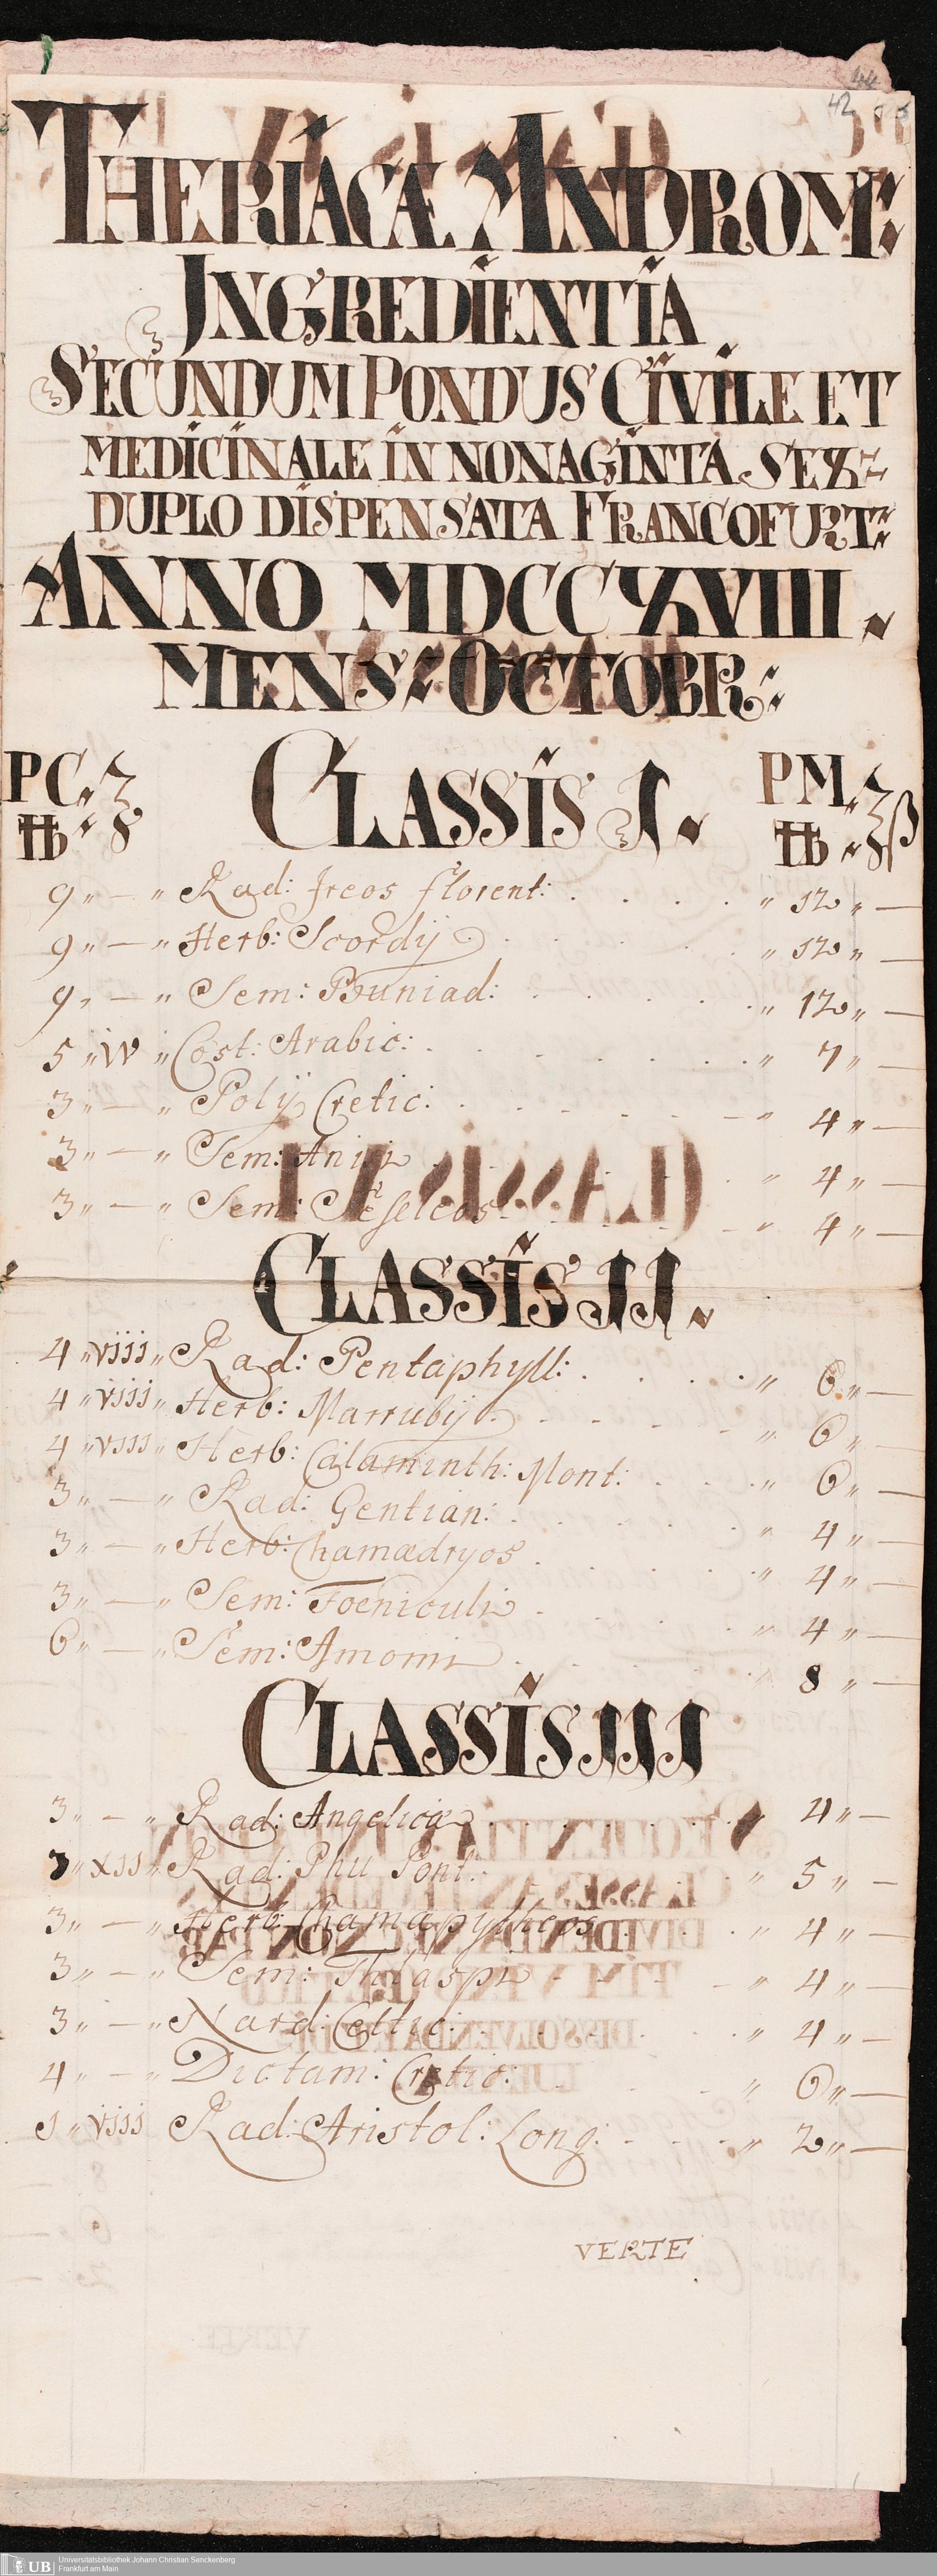 42
THERIACÆ ANDROM:
JNGREDIENTIA
SECUNDUM PONDUS CIVILE ET
MEDICINALE IN NONAGINTA SEX=
DUPLO DISPENSATA FRANCOFURT:
ANNO MDCCXVIII.
MENS: OCTOBR:
PC. ℥ CLASSIS I. PM. ℥β
℔ ℔
9 " — " Rad: Jreos florent: . . . . " 12 " —
9 " — " Herb: Scordij . . . " 12 " —
9 " — " Sem: Buniad: . . . . " 12 " —
5 " iv " Cost: Arabic: . . . . " 7 " —
3 " — " Polij Cretic: . . . . " 4 " —
3 " — " Sem: Anisi . . . " 4 " —
3 " — " Sem: Seseleos . . . " 4 " —
CLASSIS II.
4 " viij " Rad: Pentaphyll: . . . . " 6 " —
4 " viij " Herb: Marrubij . . . " 6 " —
4 " viij " Herb: Calaminth: Mont: . . . " 6 " —
3 " — " Rad: Gentian: . . . . " 4 " —
3 " — " Herb: Chamædryos . . . . " 4 " —
3 " — " Sem: Foeniculi . . . . " 4 " —
6 " — " Sem: Amomi . . . . " 8 " —
CLASSIS III
3 " — " Rad: Angelicæ . . . . " 4 " —
3 " xij " Rad: Phu Pont: . . . " 5 " —
3 " — " Herb: Chamæpytheos . . . " 4 " —
3 " — " Sem: Thlaspi . . . " 4 " —
3 " — " Nard: Celtic: . . . . " 4 " —
4 " — " Dictam: Cretic: . . . " 6 " —
1 " viij Rad: Aristol: Long: . . . " 2 " —
VERTE
UB Universitätsbibliothek Johann Christian Senckenberg
Frankfurt am Main